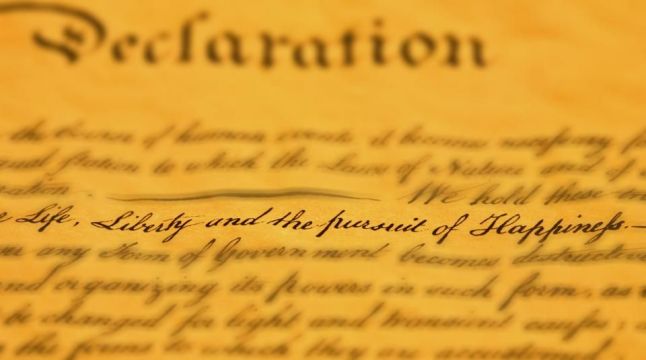 Declaration
the Course of human events it becomes necessary
station to which the Laws of Nature and of
We hold these
Life, Liberty and the pursuit of Happiness.—
any Form of Government becomes destructive
organizing its powers in such form, as
be changed for light and transient causes;
the forms to which they are accustomed